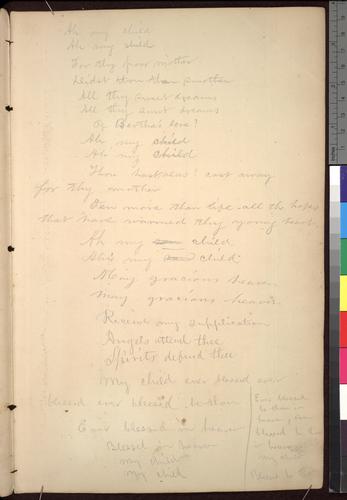 Ah my child
Ah my child
For thy poor mother
Didst thou then smother
All thy sweet dreams
All thy sweet dreams
Of Bertha's love?
Ah my child
Ah my child
Thou hast alas! cast away
for thy mother
Even more than life - all the hopes
that have warmed thy young heart.
Ah my child
Ah my child
May gracious heaven
May gracious heaven
Receive my supplication
Angels attend thee
Spirits defend thee
My child ever blessed ever
blessed ever blessed be thou
Ever blessed in heaven
Blessed in heaven
my child
my child
Ever blessed
be thou in
heaven, ever
blessed be
in heaven
my child
Blessed be